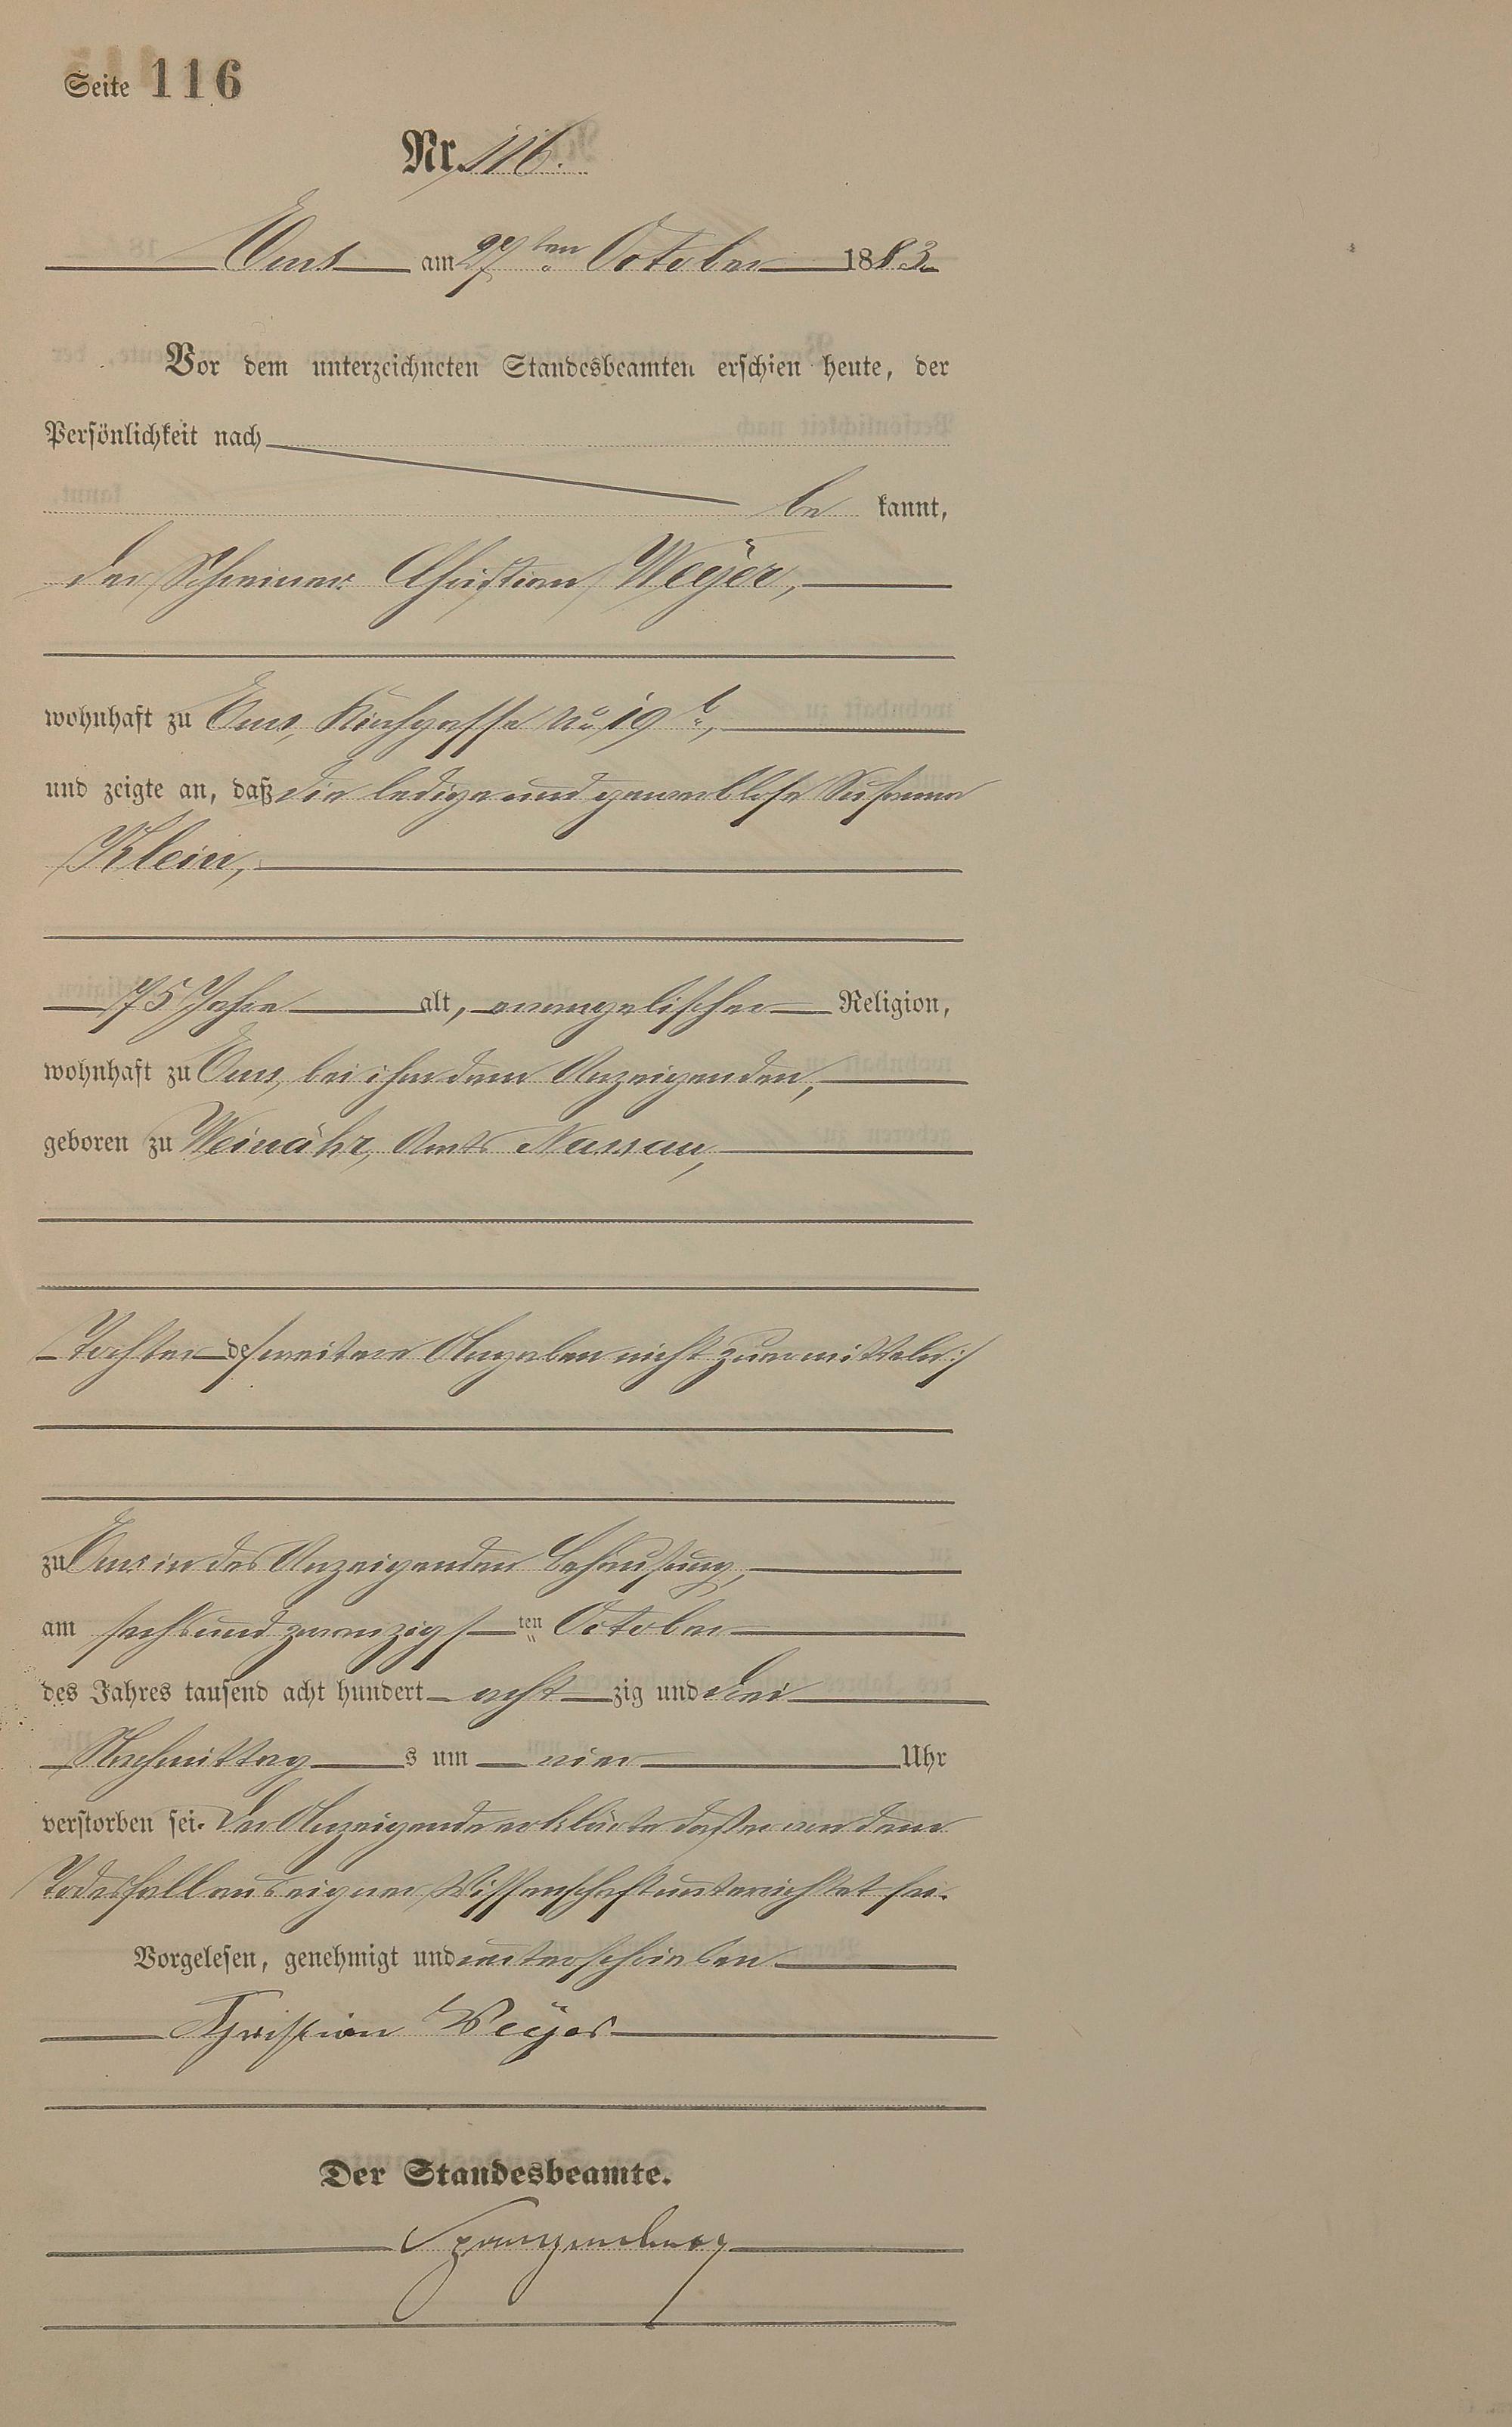 Seite 116
Nr. 116.
Ems am 27ten October 1883.
Vor dem unterzeichneten Standesbeamten erschien heute, der
Persönlichkeit nach
be kannt,
der Schreiner Christian Weyer,
wohnhaft zu Ems, Kirchgasse No 19 b,
und zeigte an, daß die ledige und gewerblose Susanna
Klein,
75 Jahre alt, evangelischer Religion,
wohnhaft zu Ems, bei ihm dem Anzeigenden,
geboren zu Weinähr, Amts Nassau,
Tochter de/ weitere Angaben nicht zu ermitteln :/
zu Ems in des Anzeigenden Behausung,
am sechs und zwanzigsten October
des Jahres tausend acht hundert acht zig und drei
Nachmittag s um vier Uhr
verstorben sei. Der Anzeigende erklärte daß er von dem
Todesfall aus eigner Wissenschaft unterrichtet sei.
Vorgelesen, genehmigt und unterschrieben
Christian Weyer
Der Standesbeamte.
Spangenberg